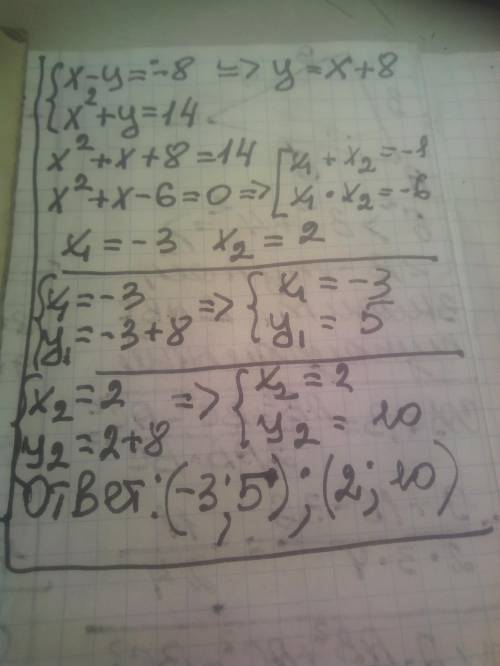 { x-y=-8 => y=x+8
{ x²+y=14
x²+x+8=14
x²+x-6=0 => [ x₁+x₂=-1
[ x₁·x₂=-6
x₁=-3 x₂=2
{ x₁=-3 => { x₁=-3
{ y₁=-3+8 { y₁=5
{ x₂=2 => { x₂=2
{ y₂=2+8 { y₂=10
Ответ: (-3; 5); (2; 10)